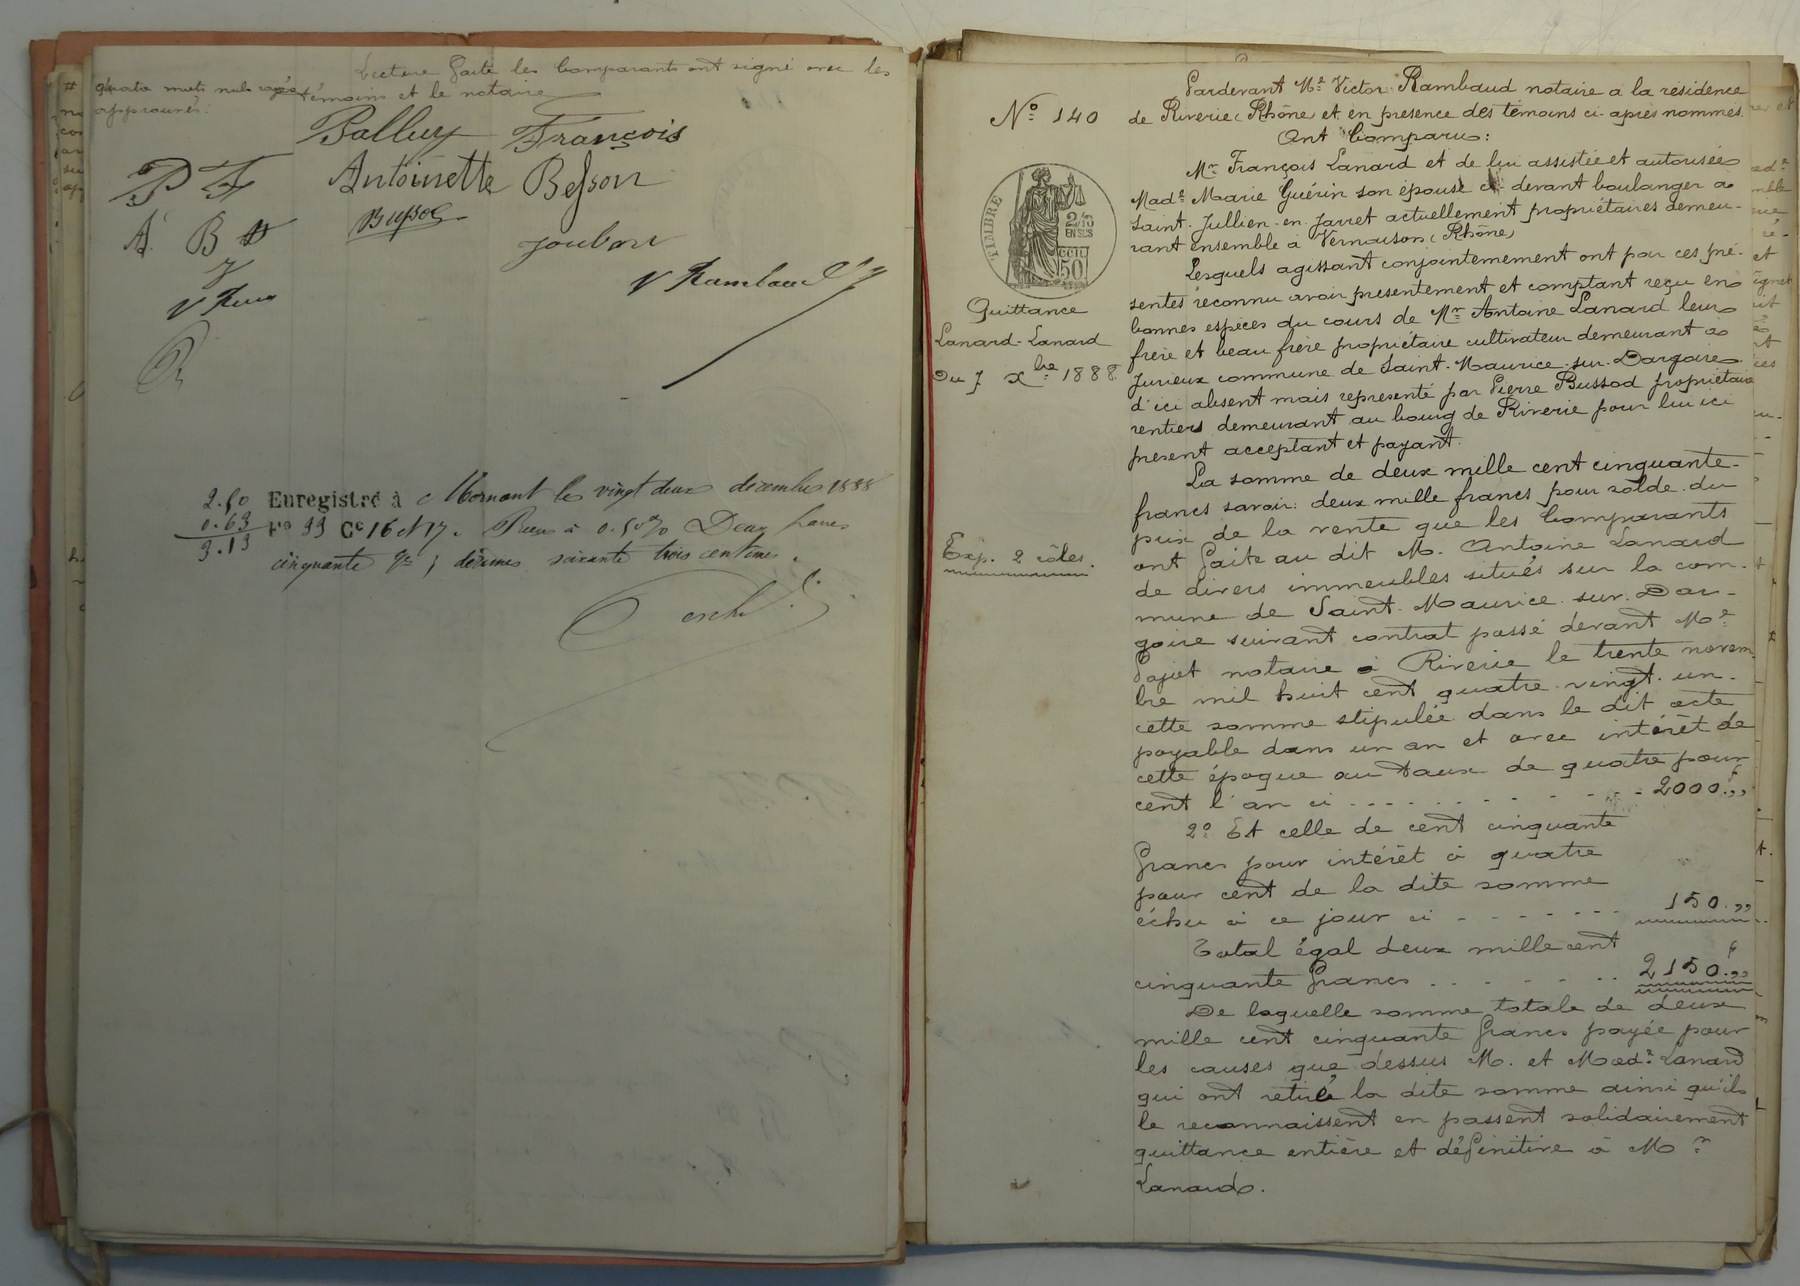 Lecture faite les Comparants ont signé avec les
témoins et le notaire
# quatre mots nuls rayés
approuvés.
Balluy François
Antoinette Besson
Bussod
Joubert
V Rambaud
P F
A B
J
V Ram
R
Enregistré à Mornant le vingt deux décembre 1888
No 33 Co 16 et 17. Reçu à 0.50% Deux francs
cinquante cs ; décimes soixante trois centimes.
2.50
0.63
3.13
No 140
TIMBRE
2/10
EN SUS
50
Quittance
Lanard-Lanard
Du 7 Xbre 1888.
Exp. 2 rôles.
Pardevant Me Victor Rambaud notaire a la résidence
de Riverie (Rhône) et en presence des témoins ci-après nommés.
Ont Comparu:
Mr François Lanard et de lui assistée et autorisée
Made Marie Guérin son épouse ci-devant boulanger a
Saint-Jullien-en-Jarret actuellement propriétaires demeu-
rant ensemble à Vernaison (Rhône)
Lesquels agissant conjointemement ont par ces pré-
sentes reconnu avoir presentement et comptant reçu en
bonnes espèces du cours de Mr Antoine Lanard leur
frère et beau frère propriétaire cultivateur demeurant a
Jurieux commune de Saint-Maurice-sur-Dargoire
d'ici absent mais representé par Pierre Bussod propriétaire
rentiers demeurant au bourg de Riverie pour lui ici
present acceptant et payant.
La somme de deux mille cent cinquante-
francs savoir: deux mille francs pour solde du
prix de la vente que les Comparants
ont faite au dit M. Antoine Lanard
de divers immeubles situés sur la com-
mune de Saint-Maurice-sur-Dar-
goire suivant contrat passé devant Me
Pajot notaire à Riverie le trente novem-
bre mil huit cent quatre-vingt-un-
cette somme stipulée dans le dit acte
payable dans un an et avec intérêt de
cette époque au taux de quatre pour
cent l'an ci - - - - - - - - - - 2000f.,,
2o Et celle de cent cinquante
francs pour intérêt à quatre
pour cent de la dite somme
échu à ce jour ci - - - - - - - 150.,,
Total égal deux mille cent
cinquante francs . . - - - . . 2150f.,,
De laquelle somme totale de deux
mille cent cinquante francs payée pour
les causes que dessus M. et Made Lanard
qui ont retiré la dite somme ainsi qu'ils
le reconnaissent en passent solidairement
quittance entière et définitive à Mr
Lanard.